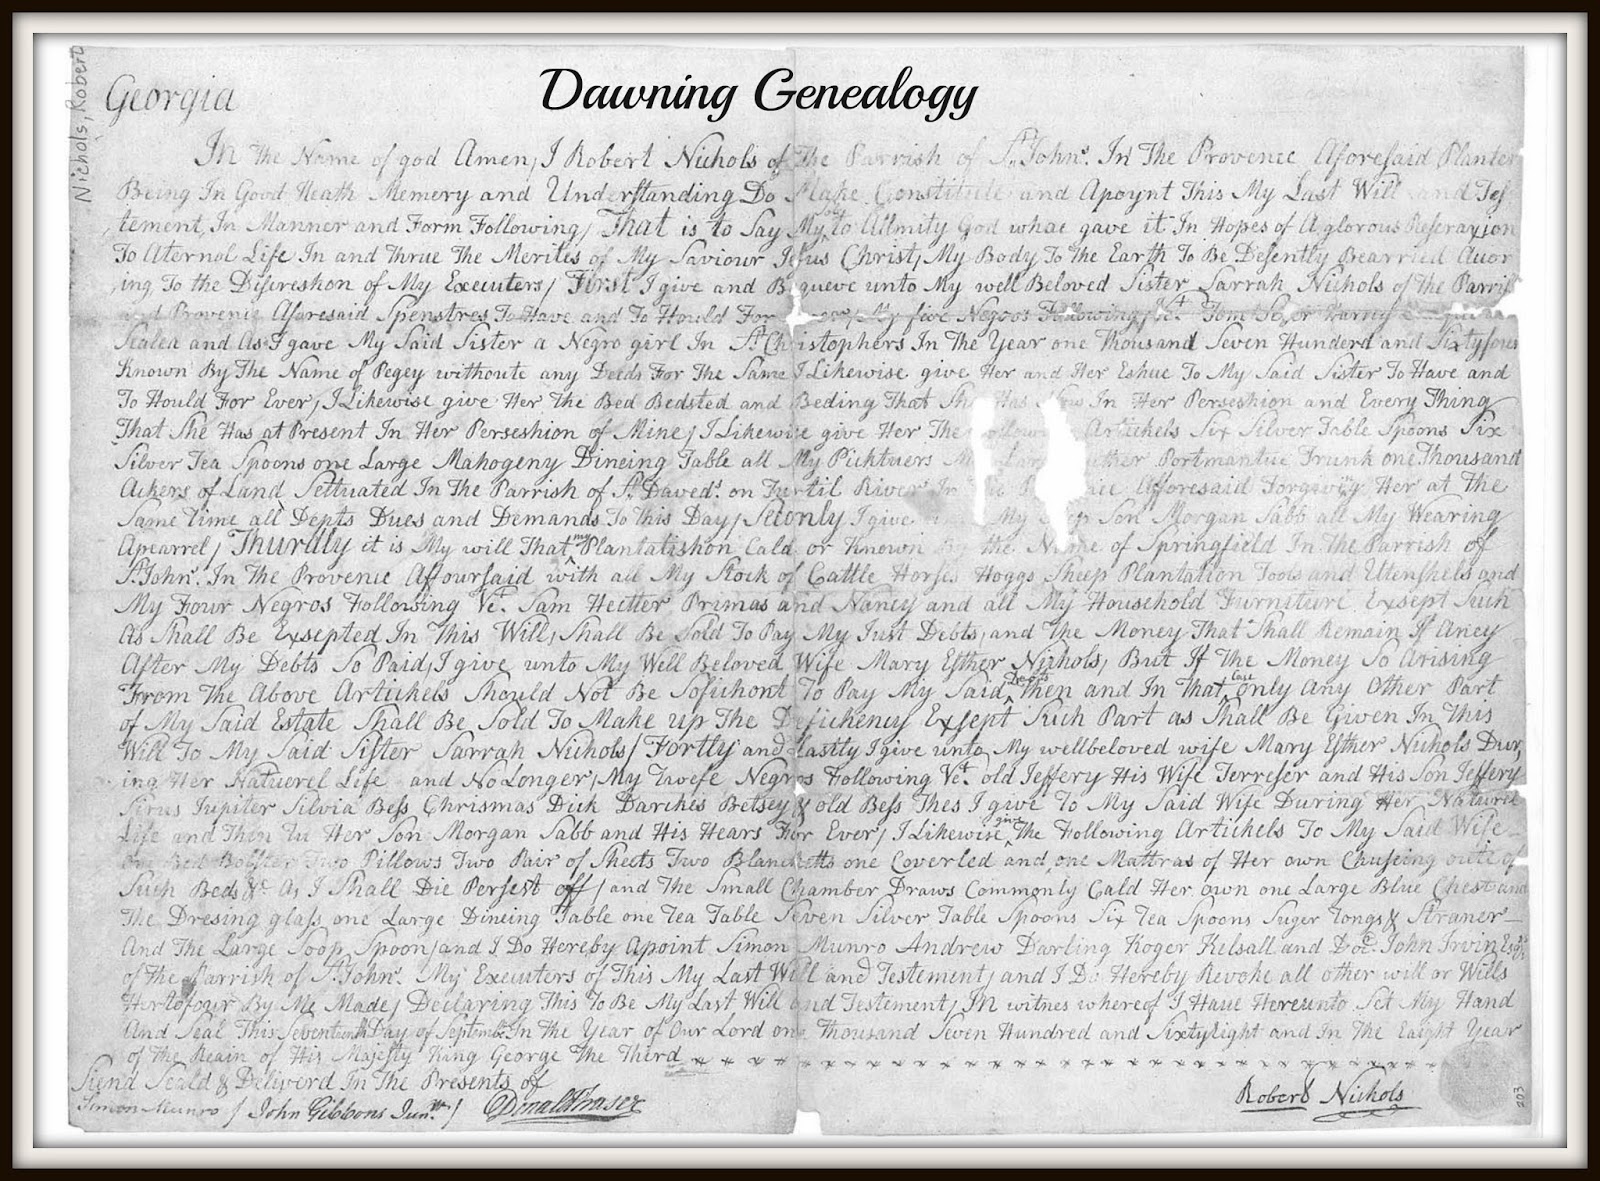 Dawning Genealogy
Nichols, Robert
Georgia
In the Name of god Amen, I Robert Nichols of The Parrish of St. Johns. In The Provence Aforesaid Planter
Being In Good Heath Memery and Understanding Do Make Constitute and Apoynt This My Last Will and Tes
tement, In Manner and Form Following, That is to Say My Soul to Allmity God whae gave it In Hopes of A glorous Reseraxion
To Aternal Life In and Thrue The Merites of My Saviour Jesus Christ, My Body To The Earth To Be Desently Bearried Acor
ing To the Disireshon of My Executers, First I give and Bequeve unto My well Beloved Sister Sarrah Nichols of the Parris
and Provenie Aforesaid Spenstres To Have and To Hould For My five Negros Following Vt. Tom
Sealea and As I gave My Said Sister a Negro girl In St. Christophers In The Year one Thousand Seven Hunderd and Sixty fower
Known By The Name of Pegey withoute any Deeds For The Same I Likewise give Her and Her Eshue To My Said Sister To Have and
To Hould For Ever, I Likewise give Her The Bed Bedsted and Beding That She Has Now In Her Perseshion and Every Thing
That She Has at Present In Her Perseshion of Mine, I Likewise give Her The Followi Artickels Six Silver Table Spoons Six
Silver Tea Spoons one Large Mahogeny Dineing Table all My Picktuers Portmantue Trunk one Thousand
Ackers of Land Settuated In The Parrish of St. Daveds. on Turtil River In Afforesaid Forgiving Her at The
Same Time all Depts Dues and Demands To This Day, Seconly I give My Step Son Morgan Sabb all My Wearing
Apearrel, Thurdly it is My will That my Plantatishon Cald or Known By the Name of Springfield In The Parrish of
St. Johns. In The Provence Affoursaid with all My Stock of Cattle Horses Hoggs Sheep Plantation Tools and Utenshels and
My Four Negros Following Vt. Sam Hecter Primas and Nancy and all My Household Furniture Exsept Such
As Shall Be Exsepted In This Will, Shall Be Sold To Pay My Just Debts, and The Money That Shall Remain If Aney
After My Debts So Paid, I give unto My Well Beloved Wife Mary Esther Nichols, But If The Money So Arising
From The Above Artickels Should Not Be Sofichont To Pay My Said Debts Then and In That Case only Any Other Part
of My Said Estate Shall Be Sold To Make up The Deficheney Exsept Such Part as Shall Be Given In This
Will To My Said Sister Sarrah Nichols, Fortly and Lastly I give unto My wellbeloved wife Mary Esther Nichols Dur,
ing Her Natuerel Life and No Longer, My Twefe Negros Following Vt. old Jeffery His Wife Terreser and His Son Jeffery
Sirus Jupiter Silvia Bess Chrismas Dick Darckes Betsey & old Bess Thes I give To My Said Wife During Her Naturel
Life and Then To Her Son Morgan Sabb and His Hears For Ever, I Likewise give The Following Artickels To My Said Wife
one Bed Bolster Two Pillows Two Pair of Sheets Two Blancketts one Coverled and one Mattras of Her own Chuseing oute of
Such Beds &c As I Shall Die Persest off, and The Small Chamber Draws Commonly Cald Her own one Large Blue Chest and
The Dresing glass one Large Dineing Table one Tea Table Seven Silver Table Spoons Six Tea Spoons Suger Tongs & Straner
And The Large Soop Spoon, and I Do Hereby Apoint Simon Munro Andrew Darling Roger Kelsall and Doc. John Irvin Esqrs
of the Parrish of St. Johns. My Executers of This My Last Will and Testement, and I Do Hereby Revoke all other will or Wills
Hertofour By Me Made, Declaring This To Be My Last Will and Testement, In witnes whereof I Haue Hereunto Set My Hand
And Seal This Seventeenth Day of September In The Year of Our Lord one Thousand Seven Hundred and Sixty Eight and In The Eaight Year
of The Reain of His Majesty King George The Third
Siend Seald & Deliverd In The Presents of
Simon Munro / John Gibbons Junr. / Donald Fraser
Robert Nichols
203